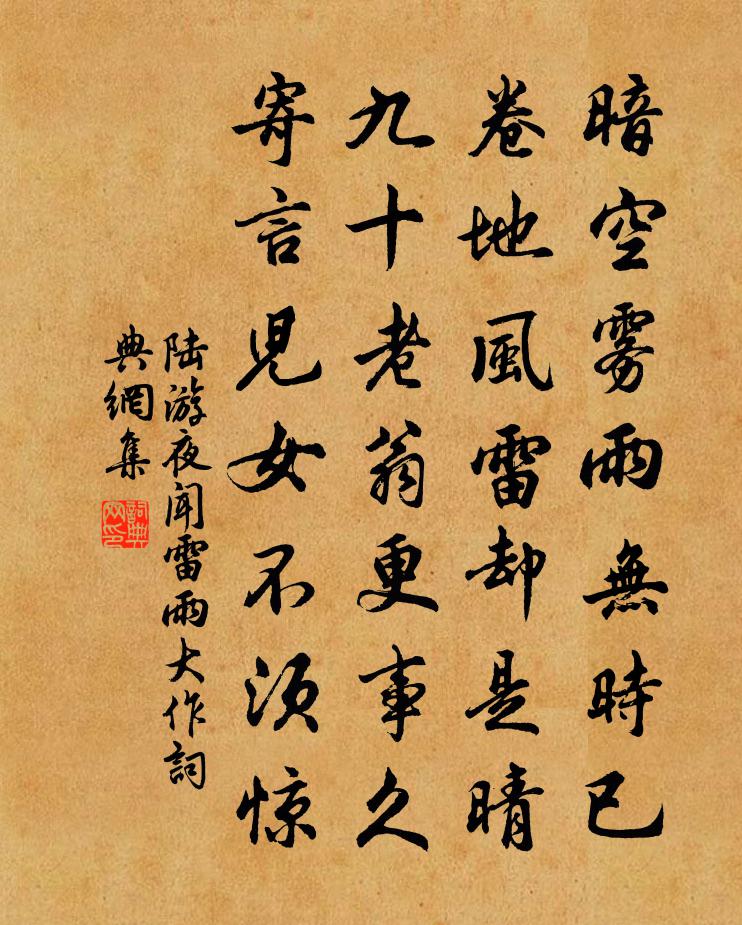 暗空雾雨無時已
卷地風雷却是晴
九十老翁更事久
寄言児女不須惊
陆游夜闻雷雨大作詞
典網集
詞典網印